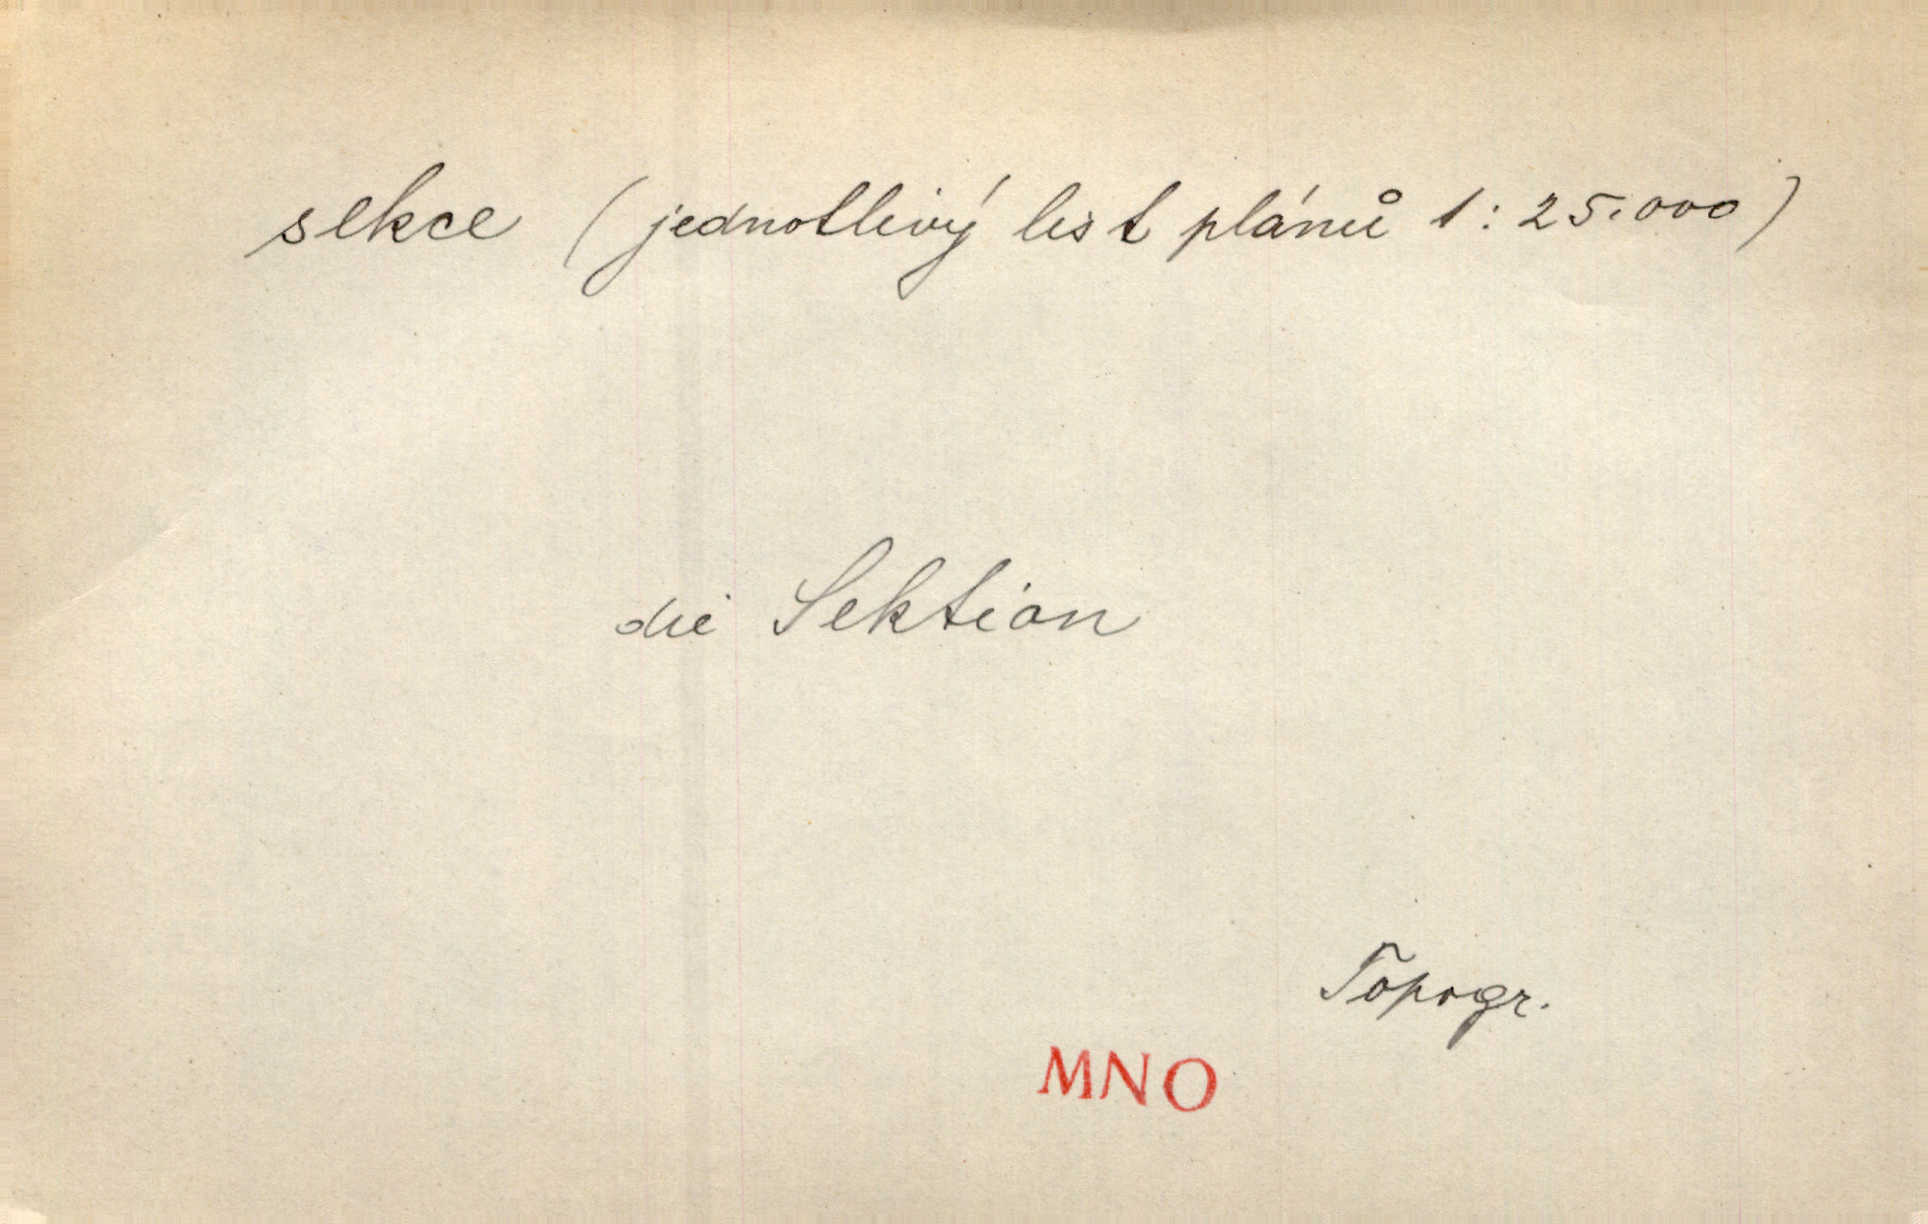 sekce (jednotlivý list plánů 1:25.000)
die Sektion
Topogr.
MNO